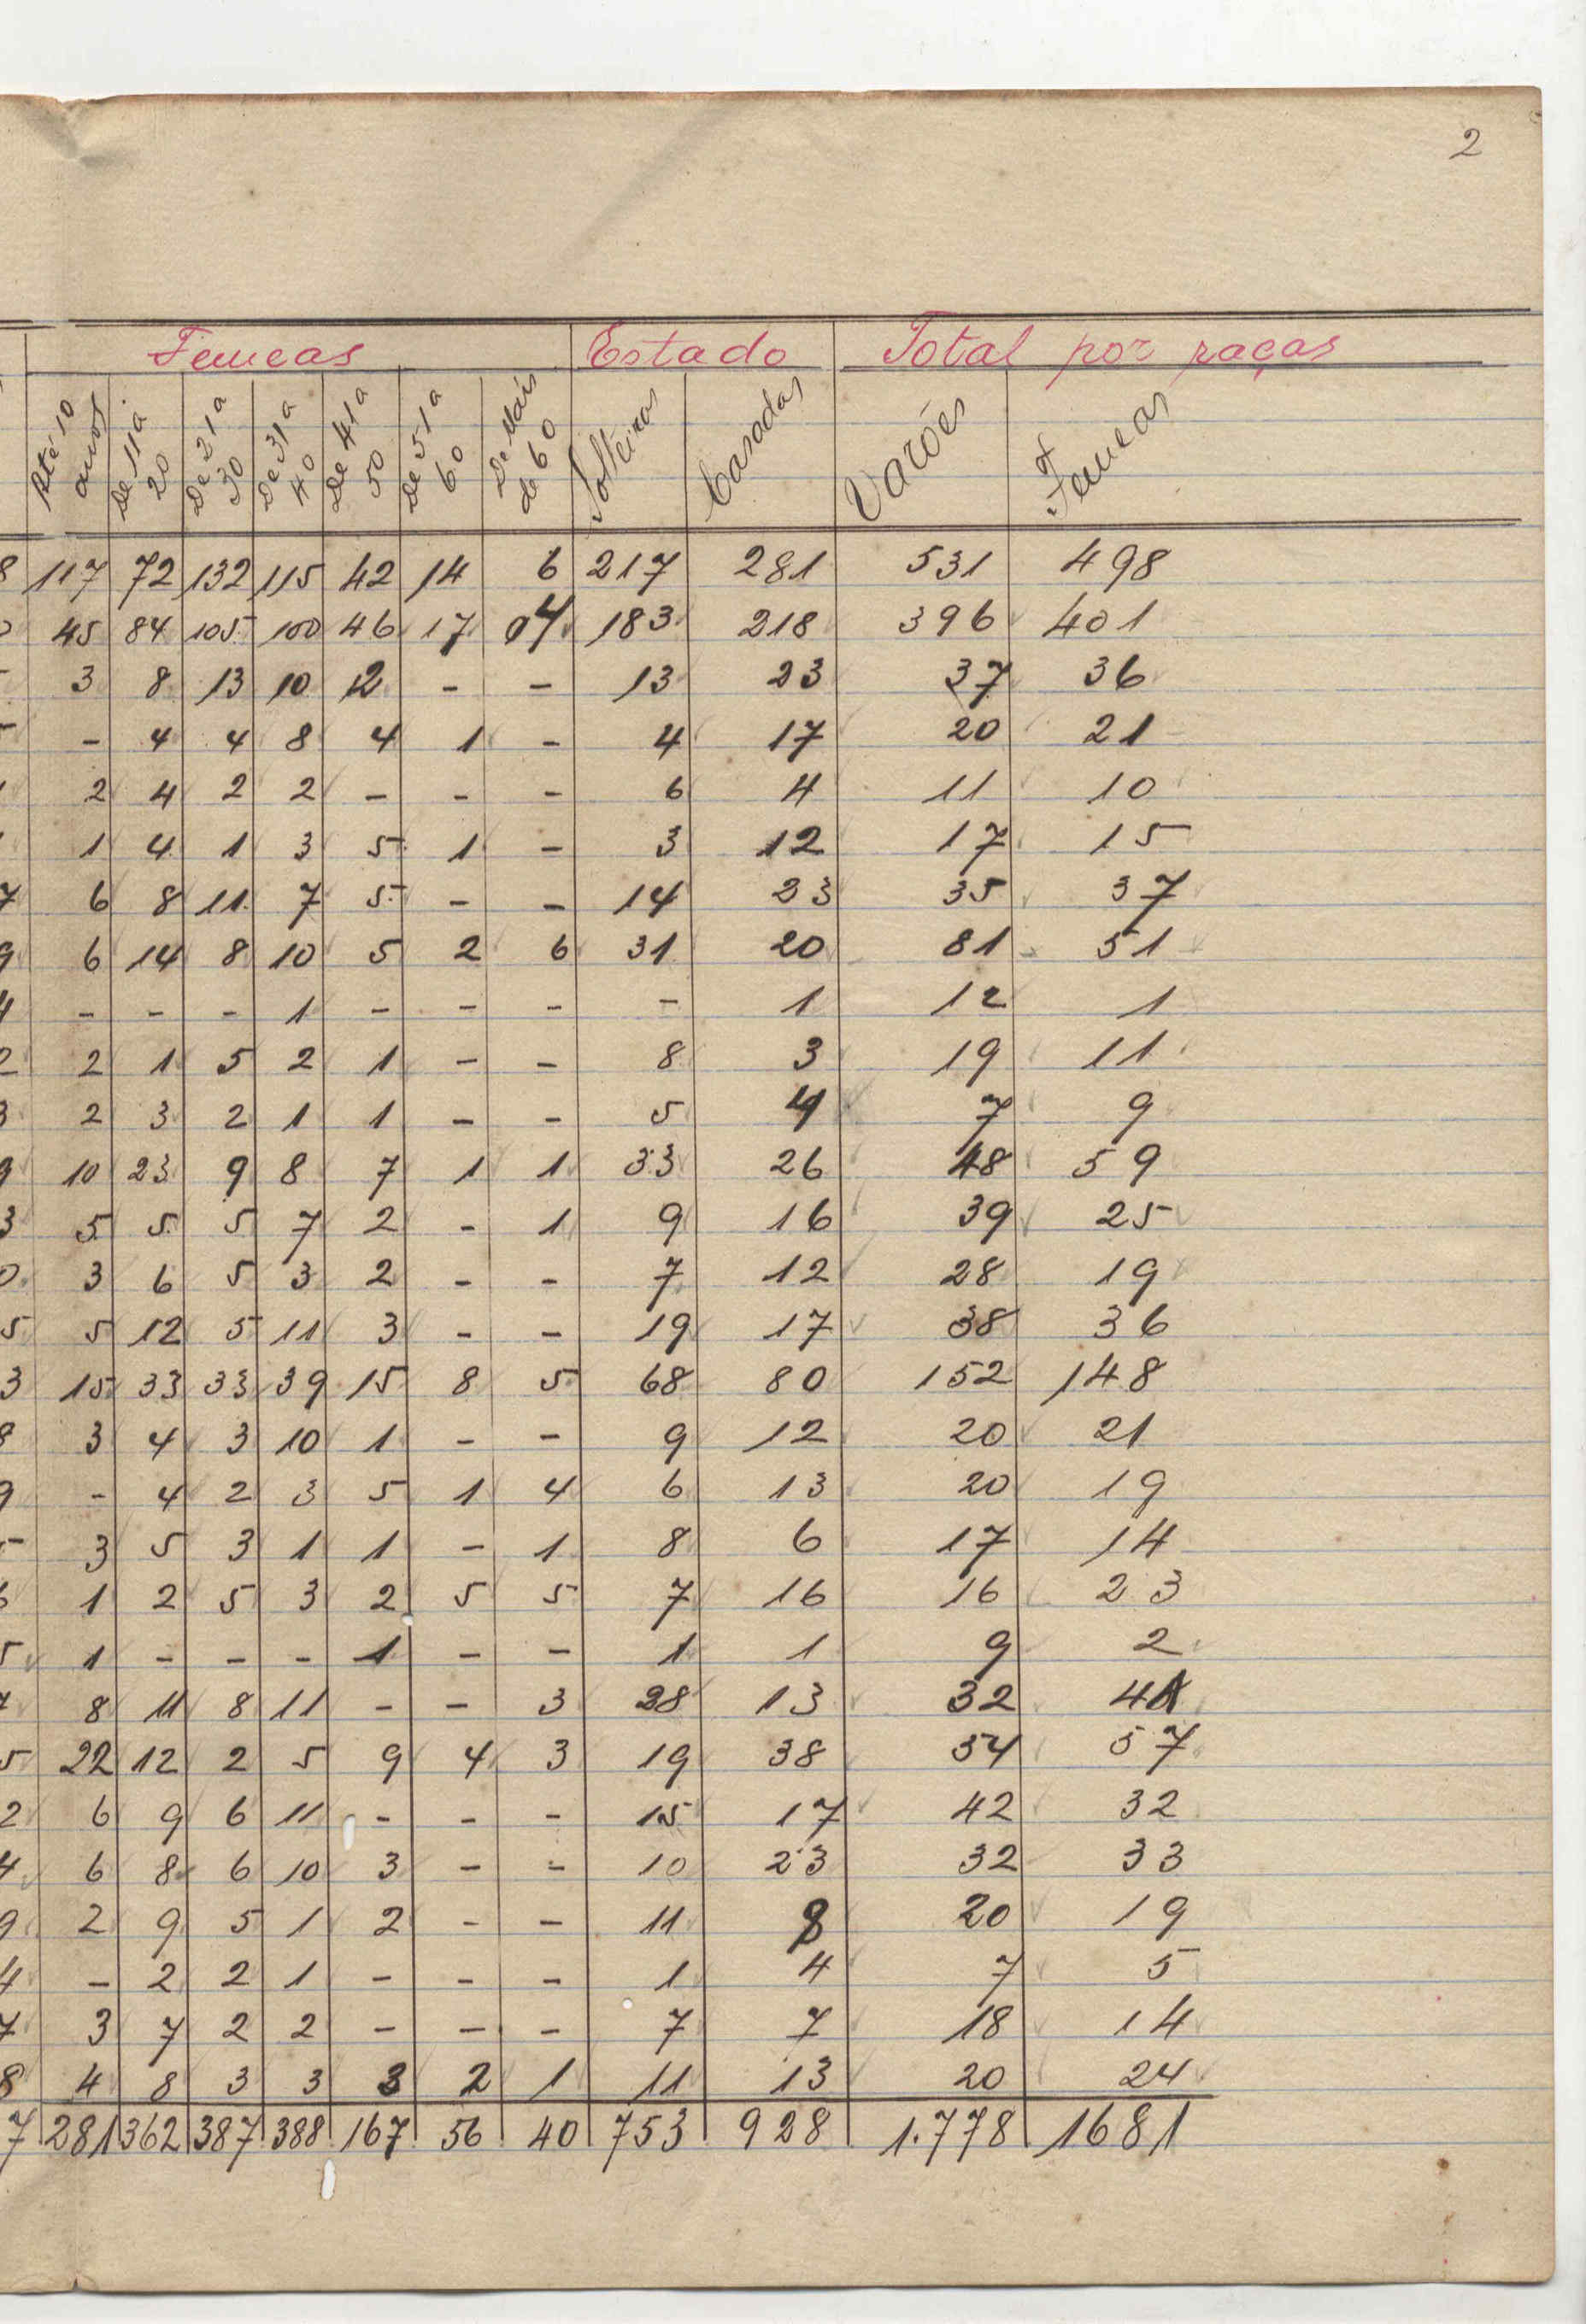 2
Femeas Estado Total por raças
Até 10 anos De 11 a 20 De 21 a 30 De 31 a 40 De 41 a 50 De 51 a 60 De Mais de 60 Solteiras Casadas Varões Femeas
8 117 72 132 115 42 14 6 217 281 531 498
45 84 105 100 46 17 04 183 218 396 401
3 8 13 10 2 - - 13 23 37 36
- 4 4 8 4 1 - 4 17 20 21
2 4 2 2 - - - 6 4 11 10
1 4 1 3 5 1 - 3 12 17 15
7 6 8 11 7 5 - - 14 23 35 37
9 6 14 8 10 5 2 6 31 20 81 51
4 - - - 1 - - - - 1 12 1
2 2 1 5 2 1 - - 8 3 19 11
3 2 3 2 1 1 - - 5 4 7 9
9 10 23 9 8 7 1 1 33 26 48 59
3 5 5 5 7 2 - 1 9 16 39 25
0 3 6 5 3 2 - - 7 12 28 19
5 5 12 5 11 3 - - 19 17 38 36
3 15 33 33 39 15 8 5 68 80 152 148
8 3 4 3 10 1 - - 9 12 20 21
9 - 4 2 3 5 1 4 6 13 20 19
5 3 5 3 1 1 - 1 8 6 17 14
6 1 2 5 3 2 5 5 7 16 16 23
5 1 - - - 1 - - 1 1 9 2
7 8 11 8 11 - - 3 28 13 32 41
5 22 12 2 5 9 4 3 19 38 54 57
2 6 9 6 11 - - - 15 17 42 32
4 6 8 6 10 3 - - 10 23 32 33
9 2 9 5 1 2 - - 11 8 20 19
4 - 2 2 1 - - - 1 4 7 5
7 3 7 2 2 - - - 7 7 18 14
8 4 8 3 3 3 2 1 11 13 20 24
7 281 362 387 388 167 56 40 753 928 1.778 1681